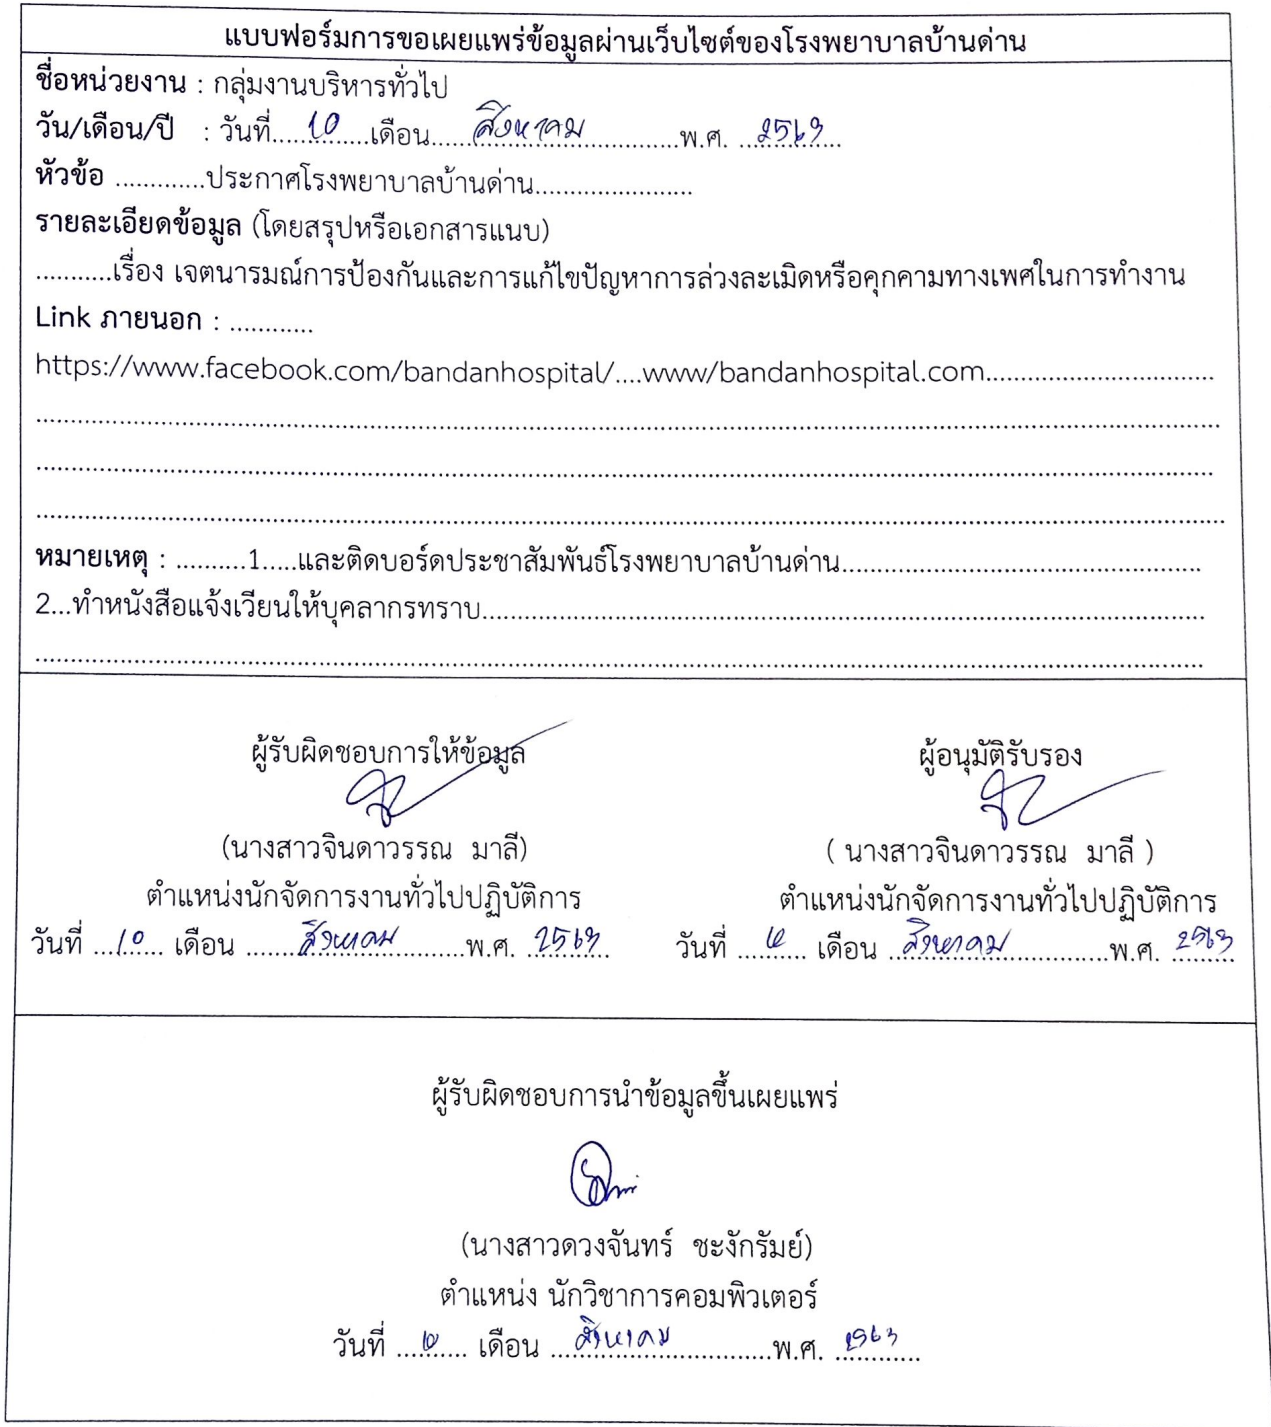 แบบฟอร์มการขอเผยแพร่ข้อมูลผ่านเว็บไซต์ของโรงพยาบาลบ้านด่าน
ชื่อหน่วยงาน : กลุ่มงานบริหารทั่วไป
วัน/เดือน/ปี : วันที่.....10.....เดือน......สิงหาคม..........พ.ศ. ...2563...
หัวข้อ ............ประกาศโรงพยาบาลบ้านด่าน.....................
รายละเอียดข้อมูล (โดยสรุปหรือเอกสารแนบ)
...........เรื่อง เจตนารมณ์การป้องกันและการแก้ไขปัญหาการล่วงละเมิดหรือคุกคามทางเพศในการทำงาน
Link ภายนอก : ............
https://www.facebook.com/bandanhospital/....www/bandanhospital.com................................
หมายเหตุ : ..........1.....และติดบอร์ดประชาสัมพันธ์โรงพยาบาลบ้านด่าน..................................................
2...ทำหนังสือแจ้งเวียนให้บุคลากรทราบ.....................................................................................................
ผู้รับผิดชอบการให้ข้อมูล ผู้อนุมัติรับรอง
(นางสาวจินดาวรรณ มาลี) ( นางสาวจินดาวรรณ มาลี )
ตำแหน่งนักจัดการงานทั่วไปปฏิบัติการ ตำแหน่งนักจัดการงานทั่วไปปฏิบัติการ
วันที่ ...10... เดือน .......สิงหาคม.........พ.ศ. .2563. วันที่ .......... เดือน ..สิงหาคม..............พ.ศ. 2563
ผู้รับผิดชอบการนำข้อมูลขึ้นเผยแพร่
(นางสาวดวงจันทร์ ชะงักรัมย์)
ตำแหน่ง นักวิชาการคอมพิวเตอร์
วันที่ .......... เดือน ...สิงหาคม..............พ.ศ. .2563...